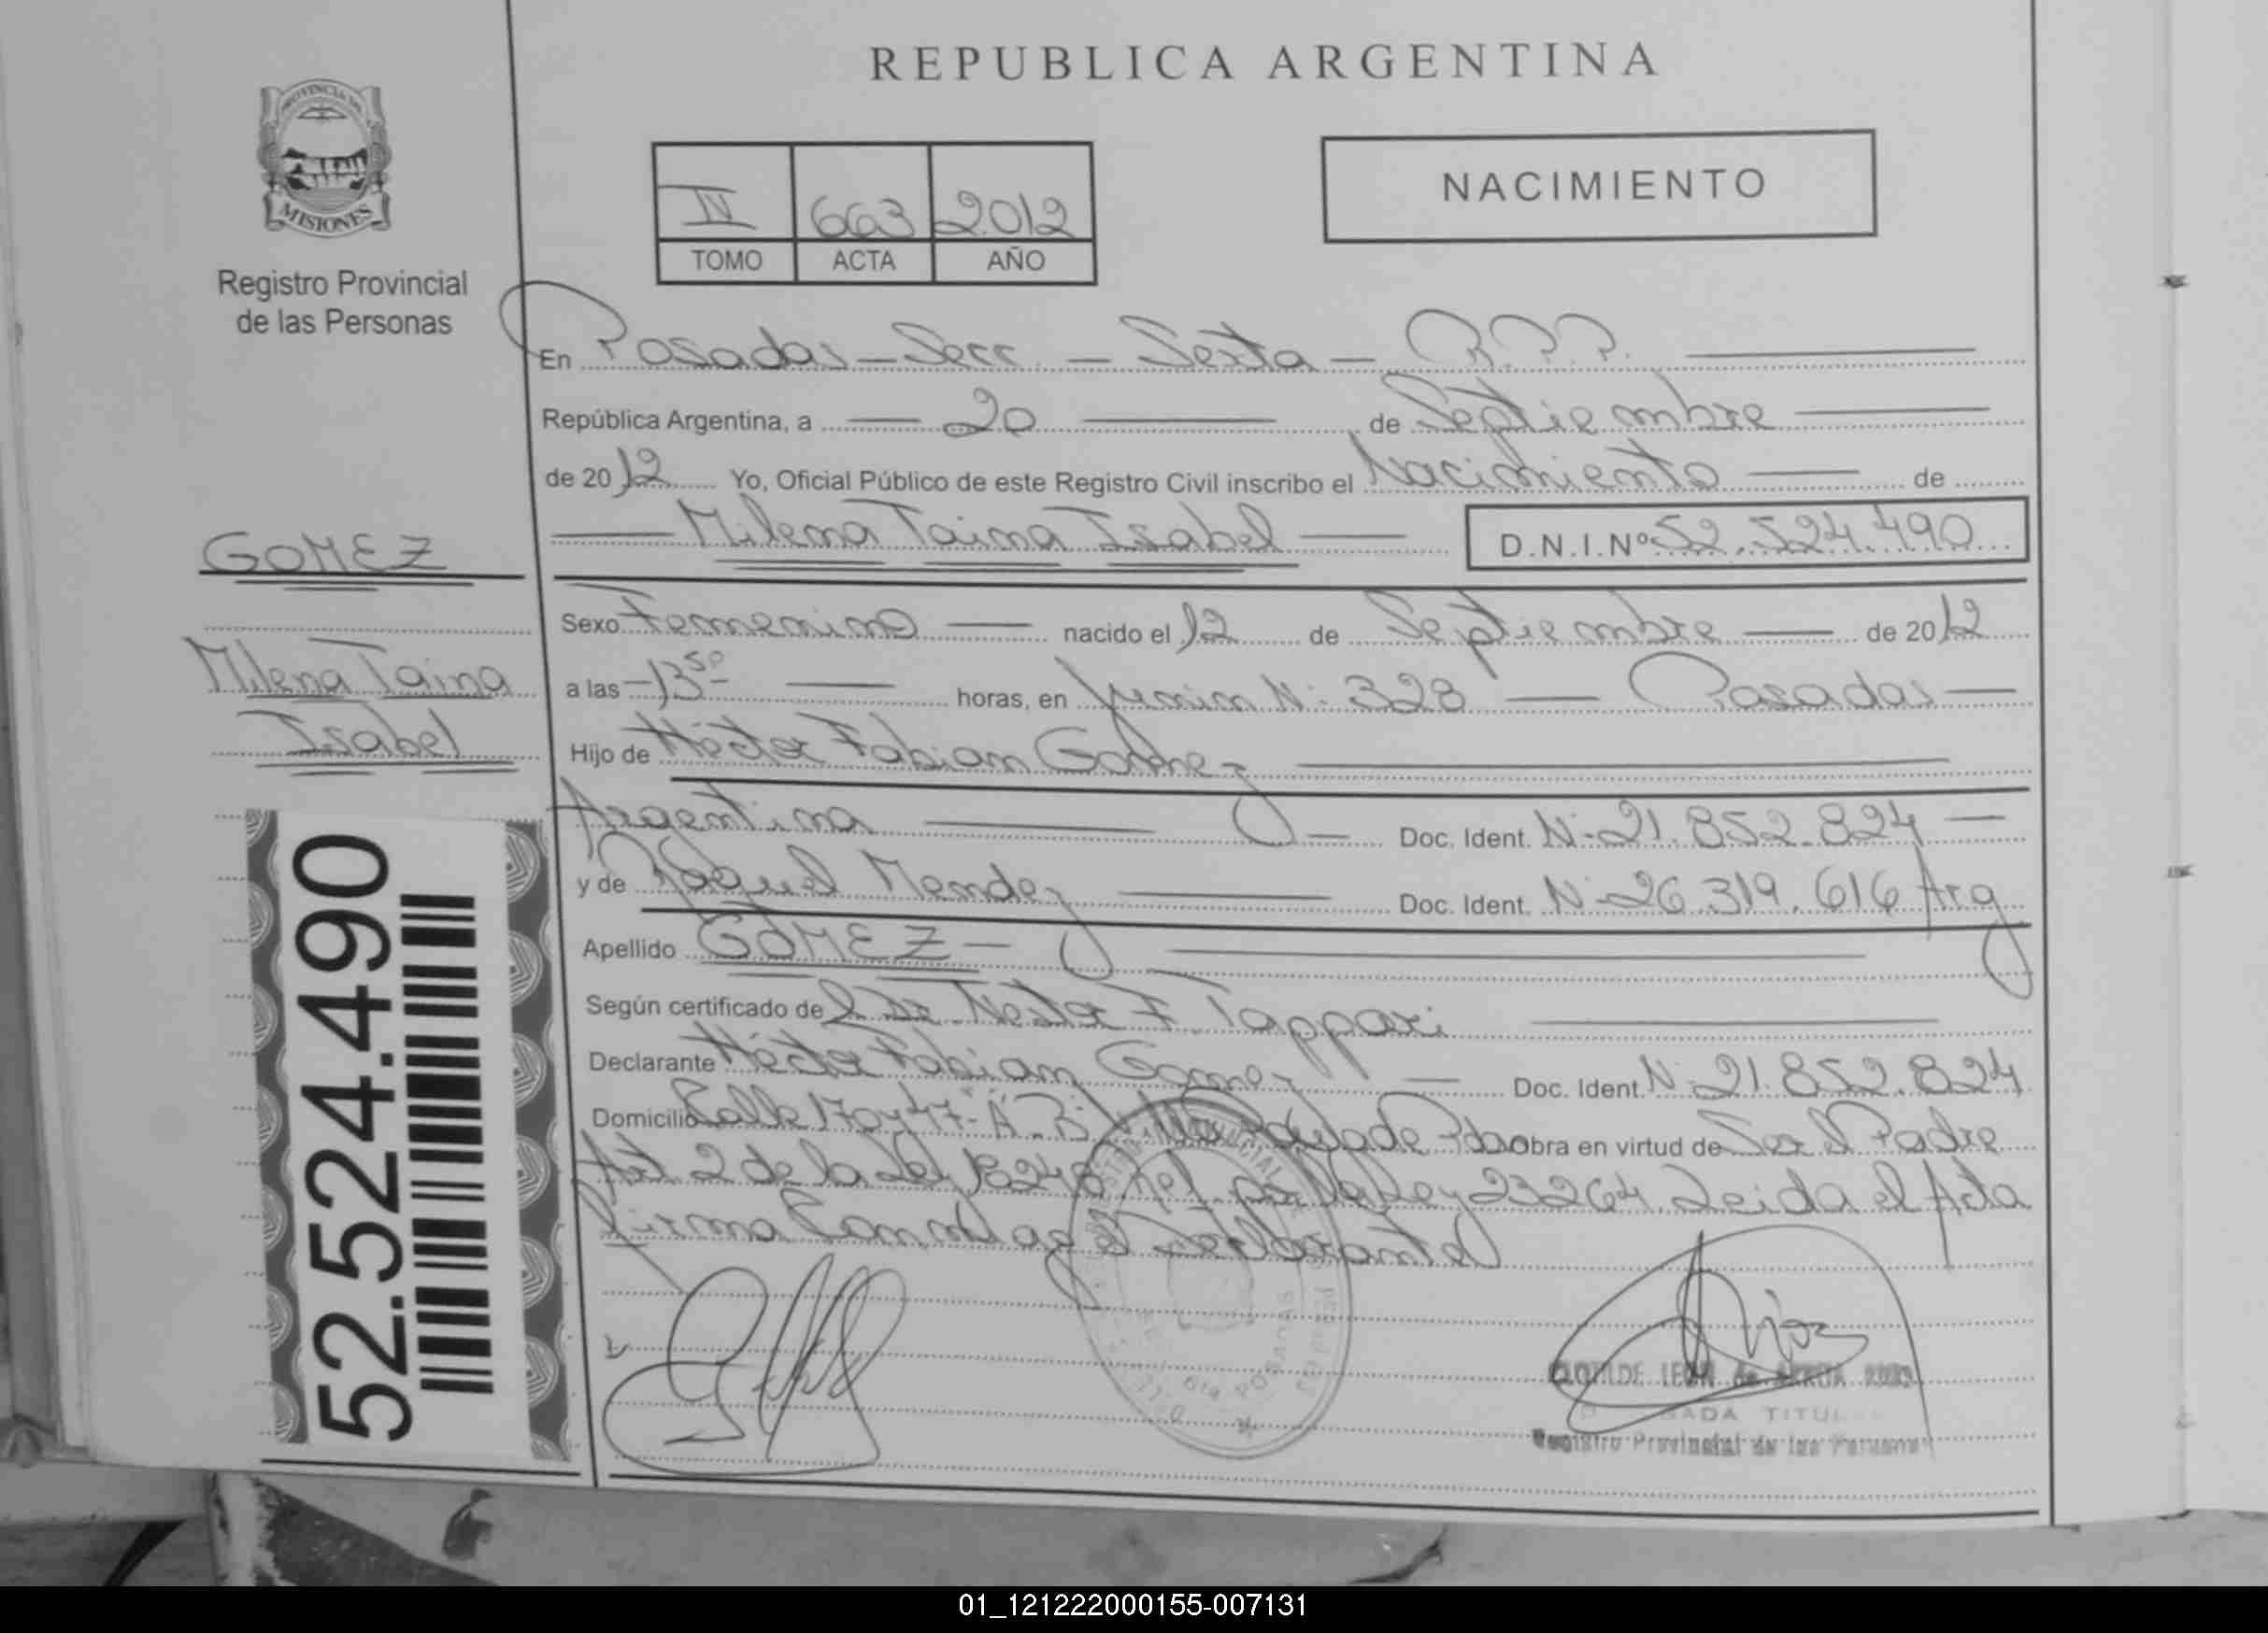 REPUBLICA ARGENTINA
PROVINCIA DE
MISIONES
Registro Provincial
de las Personas
IV 663 2012
TOMO ACTA AÑO
NACIMIENTO
En Posadas - Secc. - Sexta - R.P.P.
República Argentina, a 20 de Septiembre
de 2012 Yo, Oficial Público de este Registro Civil inscribo el Nacimiento de
Milena Taina Isabel D.N.I.Nº 52.524.490
GOMEZ
Milena Taina
Isabel
Sexo Femenino nacido el 12 de Septiembre de 2012
a las 13 50 horas, en Junin Nº 328 - Posadas
Hijo de Héctor Fabian Gomez
Argentina Doc. Ident. Nº 21.852.824
y de Raquel Mendez Doc. Ident. Nº 26.319.616 Arg
Apellido GOMEZ
Según certificado de Nestor F. Tappari
Declarante Héctor Fabian Gomez Doc. Ident. Nº 21.852.824
Domicilio Calle 170 y 47 obra en virtud de Ser el Padre
Art 2 de la Ley 18248 Ley 23264. Leida el Acta
firma Conmigo el Declarante
52.524.490
CLOTILDE LEON de
TITUL
Registro Provincial de las Personas
POSADAS
01_121222000155-007131